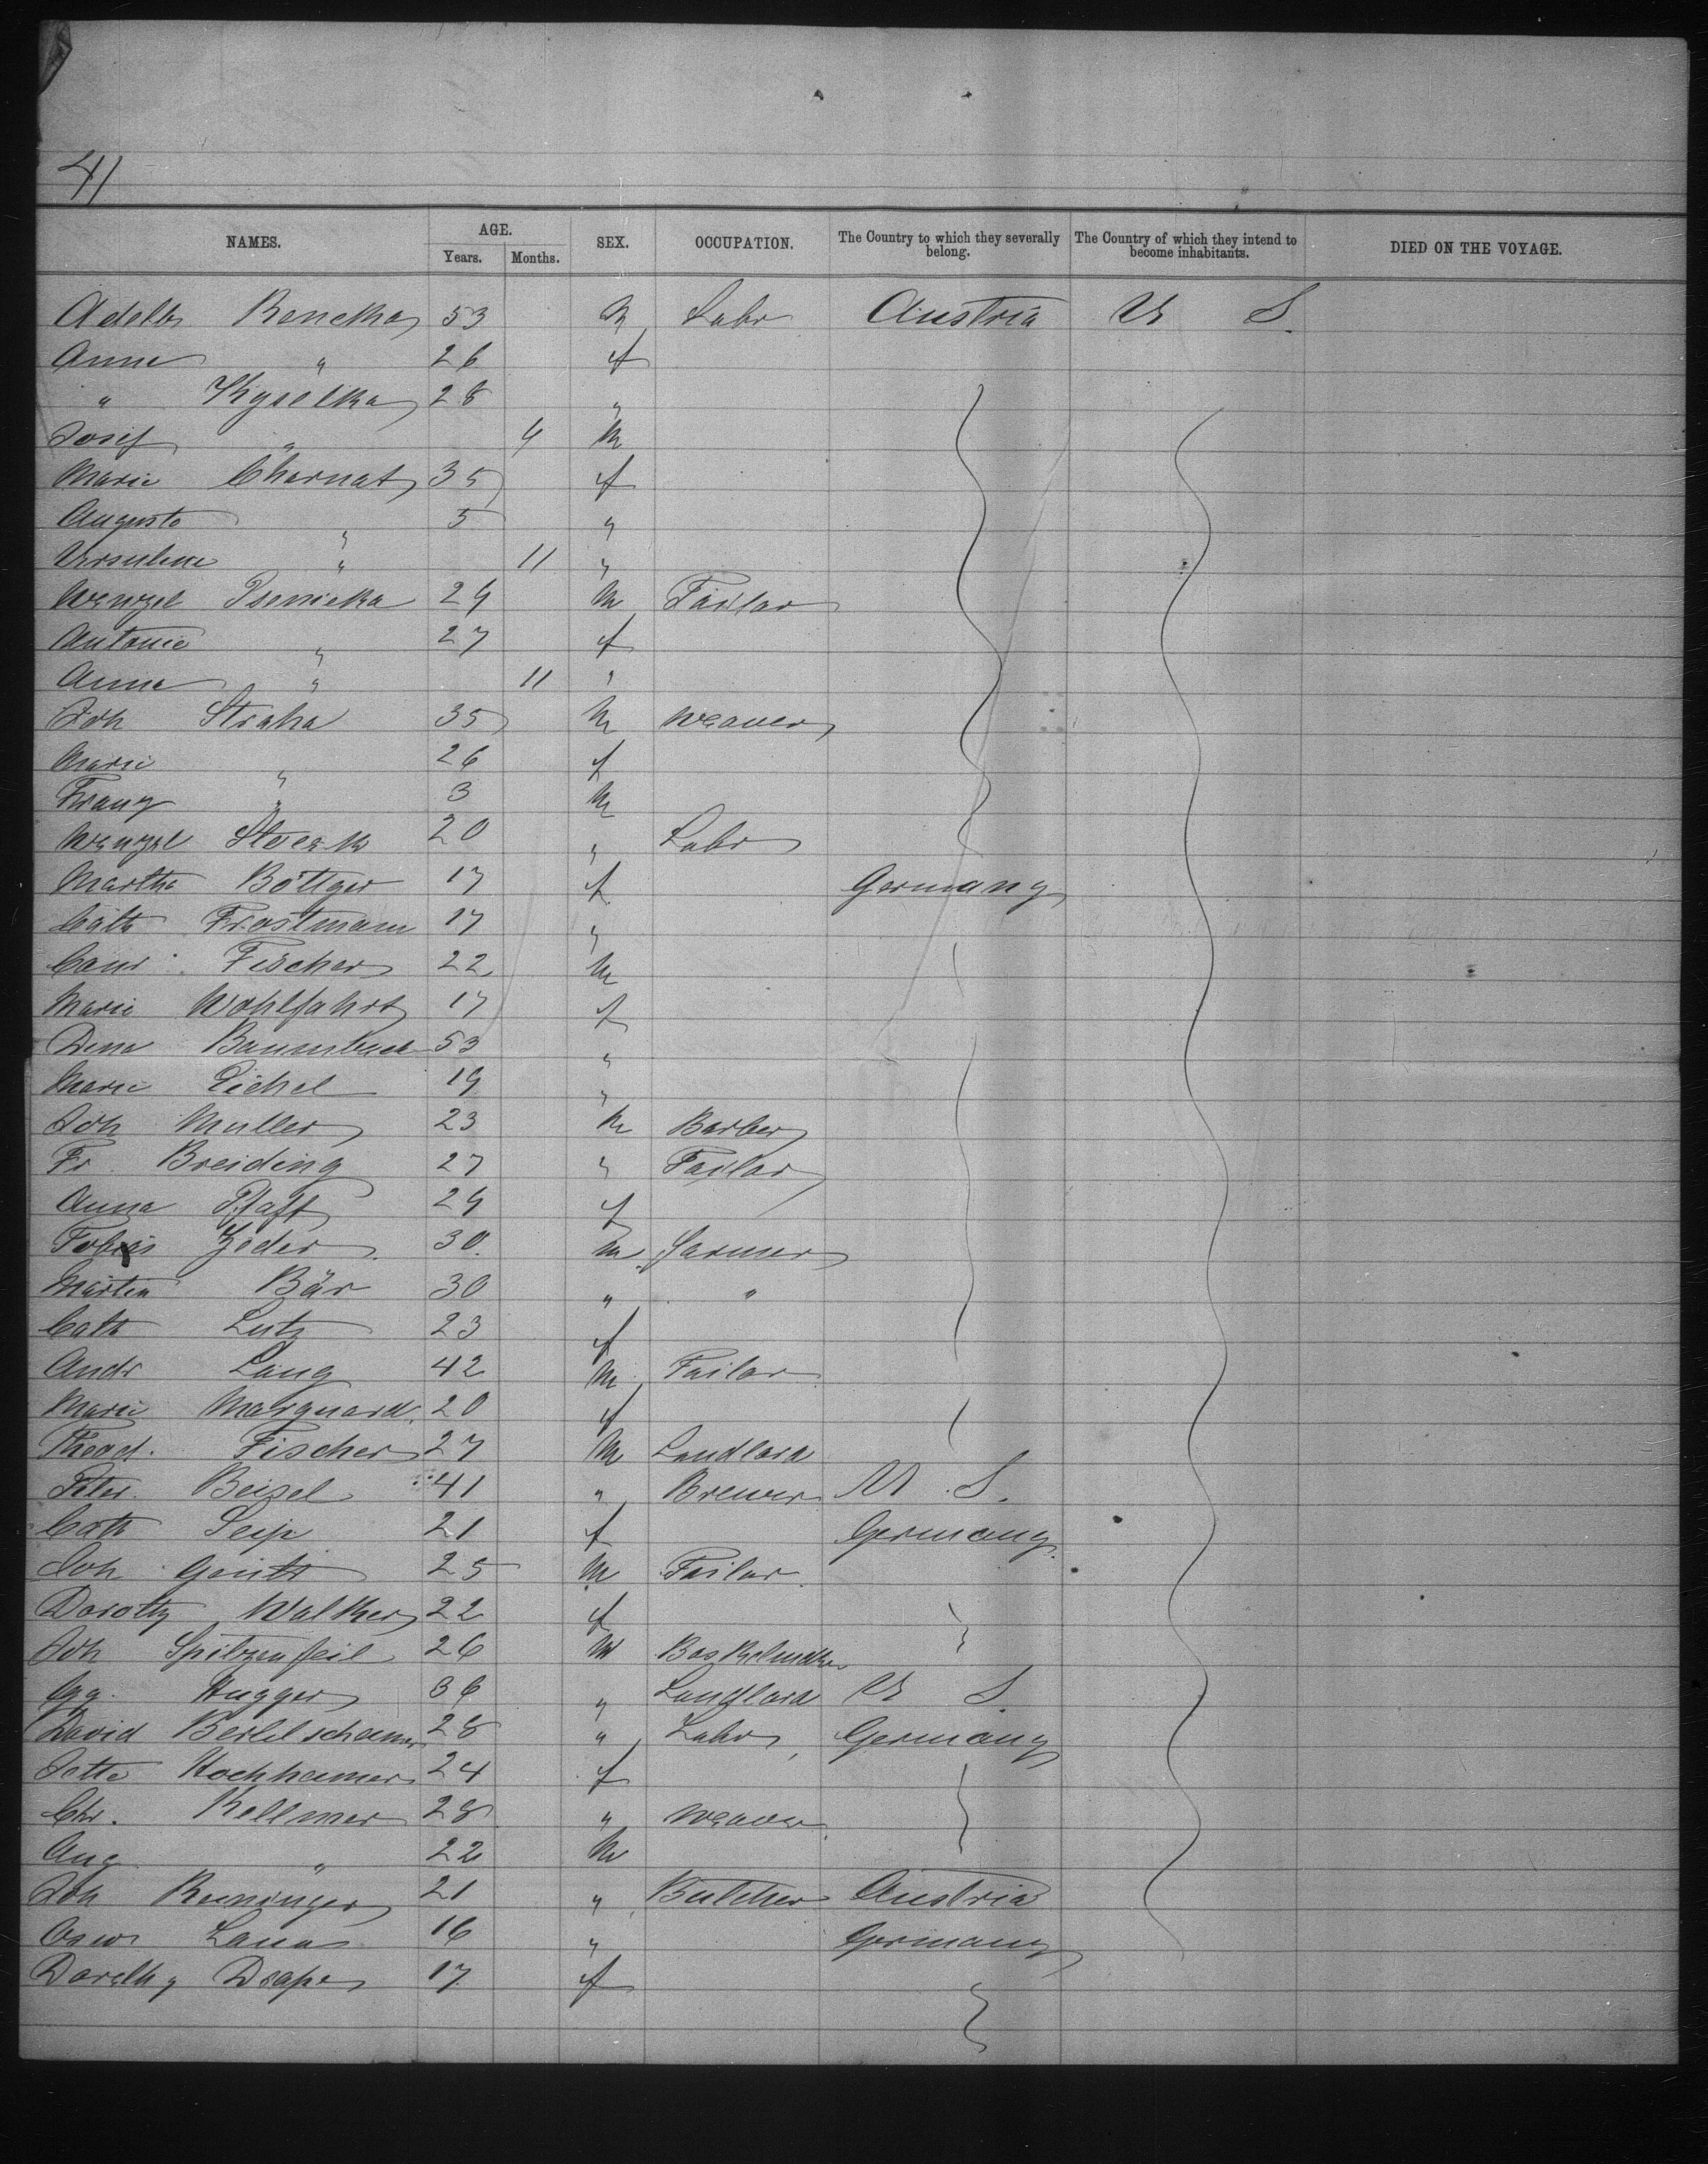 41
NAMES. AGE. SEX. OCCUPATION. The Country to which they severally belong. The Country of which they intend to become inhabitants. DIED ON THE VOYAGE.
Years. Months.
Adelb Rencka 53 M Labr Austria U S.
Anna " 26 f
" Kyselka 28 "
Josef " 4 M
Marie Chernat 35 f
Augusta " 5 "
Ursulina " 11 "
Wenzel Psenicka 29 M Tailor
Antonie " 27 f
Anna " 11 "
Joh Straka 35 M Weaver
Marie " 26 f
Franz " 3 M
Wenzel 20 " Labr
Martha Böttger 17 f Germany
Cath Frostmann 17 "
Fischer 22 M
Marie Wohlfahrt 17 f
Dina 53 "
Marie Eichel 19 "
Joh Muller 23 M Barber
Fr Breiding 27 " Tailor
Anna Pfaff 29 f
Tobias Zeder 30 M Farmer
Martin Bär 30 " "
Cath Lutz 23 f
Andr Lang 42 M Tailor
Marie Marquard 20 f
Theod. Fischer 27 M Landlord
Peter Beisel 41 " Brewer U S.
Cath Seip 21 f Germany
Joh 25 M Tailor
Dorothy Walker 22 f
Joh Spitzenfeil 26 M Basketmaker
Gg. Hugger 36 " Landlord U S
David 28 " Labr Germany
Jette Hochheimer 24 f
Chr. Kellmer 28 " Weaver
Aug " 22 M
Joh Reininger 21 " Butcher Austria
16 " Germany
Dorethy Drape 17 f